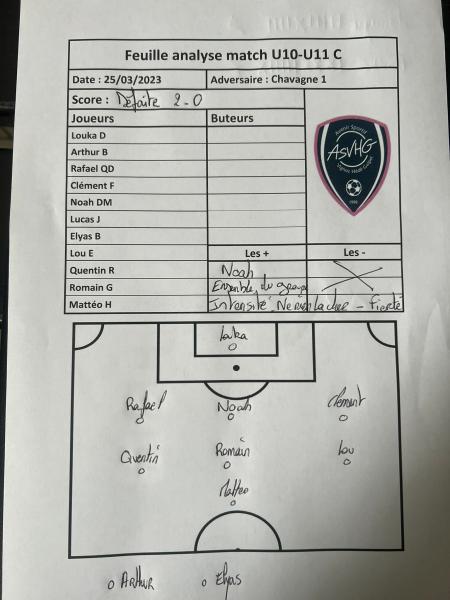 Feuille analyse match U10-U11 C
Date : 25/03/2023 Adversaire : Chavagne 1
Score : Défaite 2-0
Joueurs Buteurs
Louka D
Arthur B
Rafael QD
Clément F
Noah DM
Lucas J
Elyas B
Lou E Les + Les -
Quentin R Noah
Romain G Ensemble du groupe
Mattéo H Intensité Ne rien lacher - Fierté
Avenir Sportif
ASVHG
1998
Louka
Rafael Noah Clément
Quentin Romain Lou
Matteo
Arthur Elyas